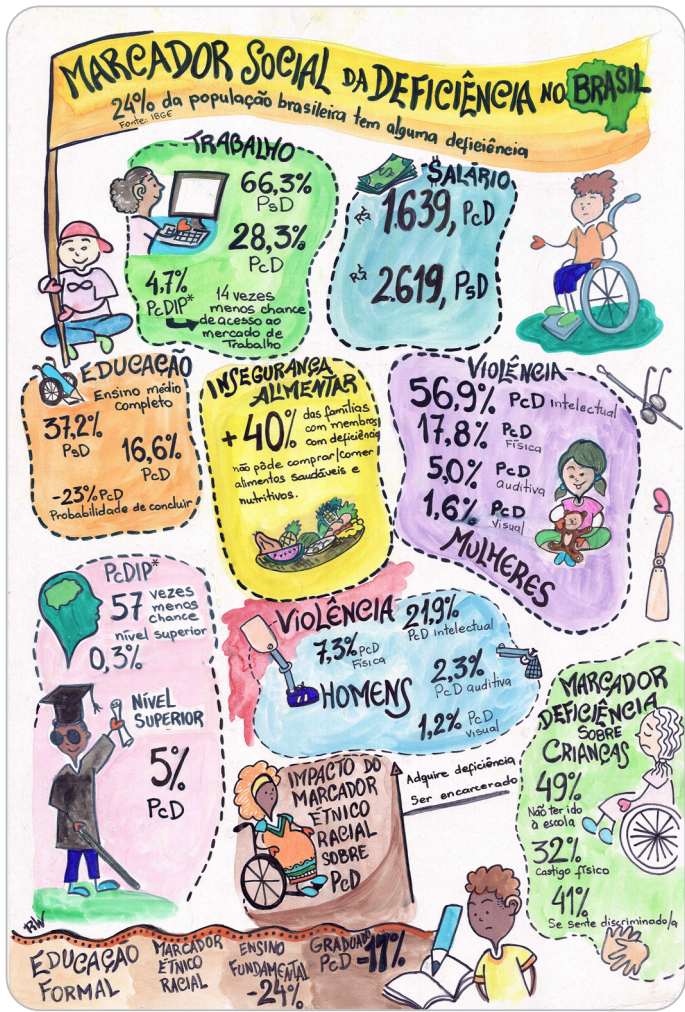 MARCADOR SOCIAL DA DEFICIÊNCIA NO BRASIL
24% da população brasileira tem alguma deficiência
Fonte: IBGE
TRABALHO
66,3%
PsD
28,3%
PcD
4,7%
PcDIP*
14 vezes
menos chance
de acesso ao
mercado de
Trabalho
SALÁRIO
R$ 1.639, PcD
R$ 2.619, PsD
EDUCAÇÃO
Ensino médio
completo
37,2%
PsD
16,6%
PcD
-23% PcD
Probabilidade de concluir
INSEGURANÇA
ALIMENTAR
+40% das famílias
com membros
com deficiência
não pôde comprar/comer
alimentos saudáveis e
nutritivos.
VIOLÊNCIA
56,9% PcD intelectual
17,8% PcD
Física
5,0% PcD
auditiva
1,6% PcD
visual
MULHERES
PcDIP*
57 vezes
menos
chance
nível superior
0,3%
NÍVEL
SUPERIOR
5%
PcD
VIOLÊNCIA
21,9%
PcD intelectual
7,3% PcD
Física
2,3%
PcD auditiva
HOMENS
1,2% PcD
visual
MARCADOR
DEFICIÊNCIA
SOBRE
CRIANÇAS
49%
Não ter ido
à escola
32%
Castigo físico
41%
Se sente discriminado/a
IMPACTO DO
MARCADOR
ÉTNICO
RACIAL
SOBRE
PcD
Adquire deficiência
Ser encarcerado
RIW
EDUCAÇÃO
FORMAL
MARCADOR
ÉTNICO
RACIAL
ENSINO
FUNDAMENTAL
-24%
GRADUADO
PcD -17%